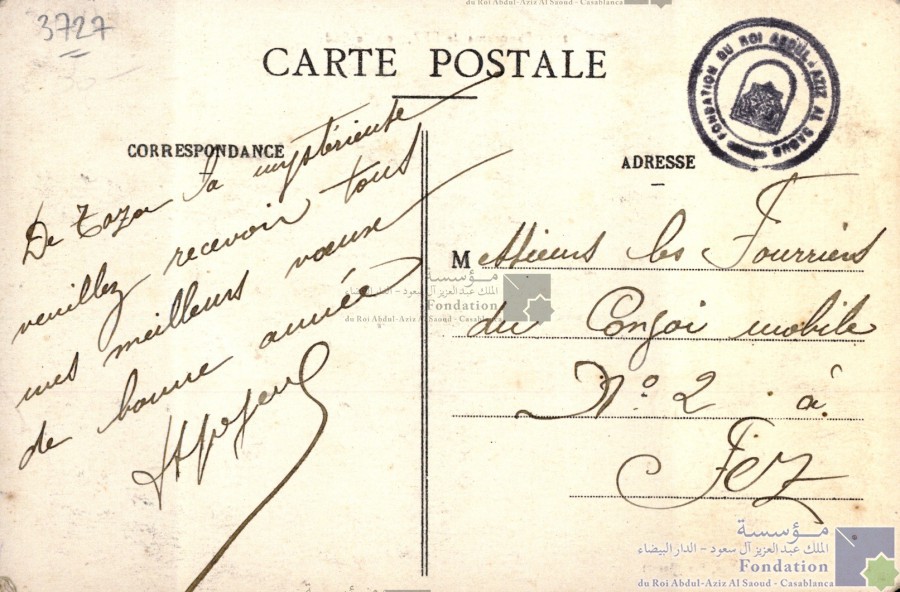 du Roi Abdul-Aziz Al Saoud - Casablanca
3727
CARTE POSTALE
FONDATION DU ROI ABDUL-AZIZ AL SAOUD
CORRESPONDANCE
De Taza la mystérieuse
veuillez recevoir tous
mes meilleurs vœux
de bonne année
ADRESSE
Messieurs les Fourriers
du Convoi mobile
N° 2 à
Fez
مؤسسة
الملك عبد العزيز آل سعود - الدار البيضاء
Fondation
du Roi Abdul-Aziz Al Saoud - Casablanca
مؤسسة
الملك عبد العزيز آل سعود - الدار البيضاء
Fondation
du Roi Abdul-Aziz Al Saoud - Casablanca